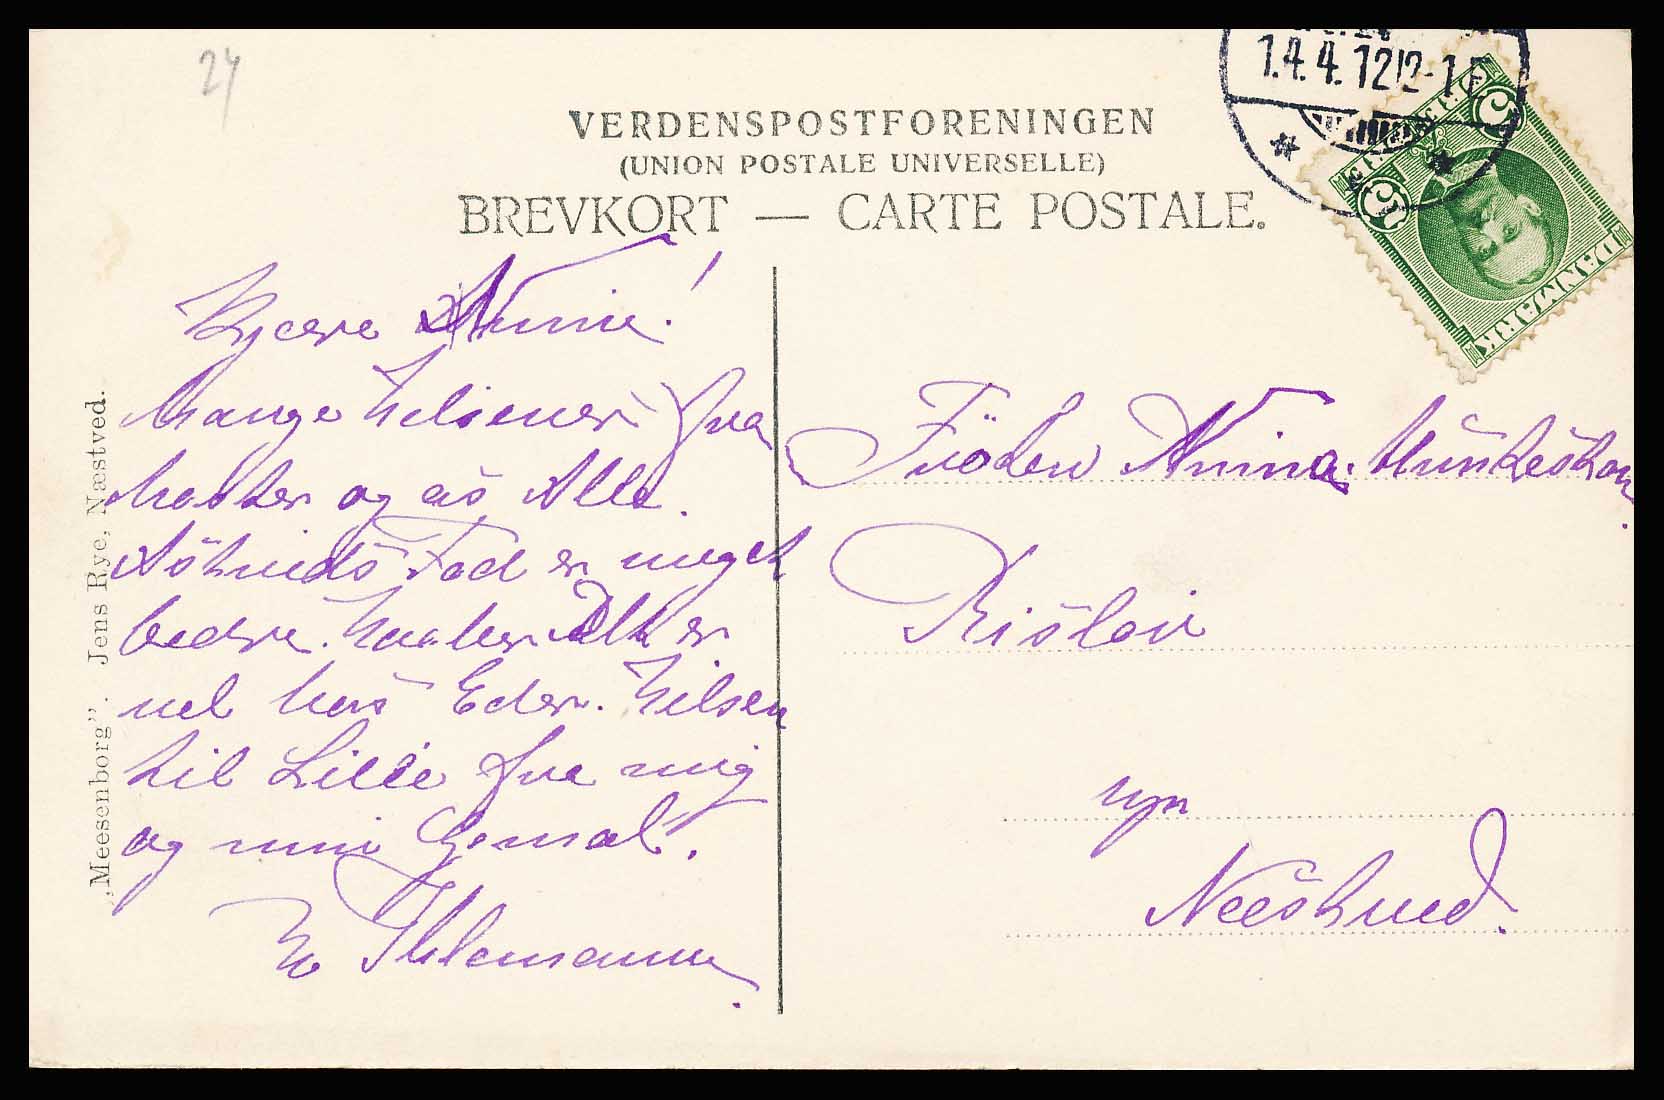 24
VERDENSPOSTFORENINGEN
(UNION POSTALE UNIVERSELLE)
BREVKORT — CARTE POSTALE.
1.4.4.12 12-1 E
5
5
DANMARK
Kjære Anna!
Mange Hilsener fra
Moster og os Alle.
Astrids Fod er meget
bedre. Haaber Alt er
vel hos Eder. Hilsen
til Lille fra mig
og min Gemal.
Thlemann
Frøken Anna
Rislev
pr
Næstved.
„Meesenborg". Jens Rye, Næstved.